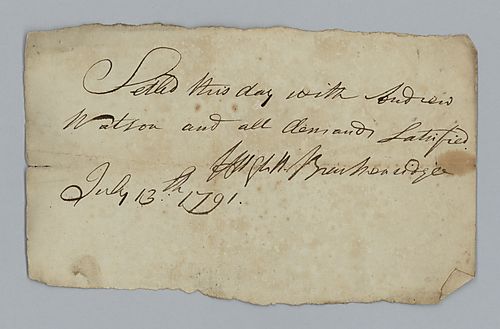 Settled this day with Andrew
Watson and all demands Satisfied.
Hugh H. Brackenridge
July 13.th 1791.